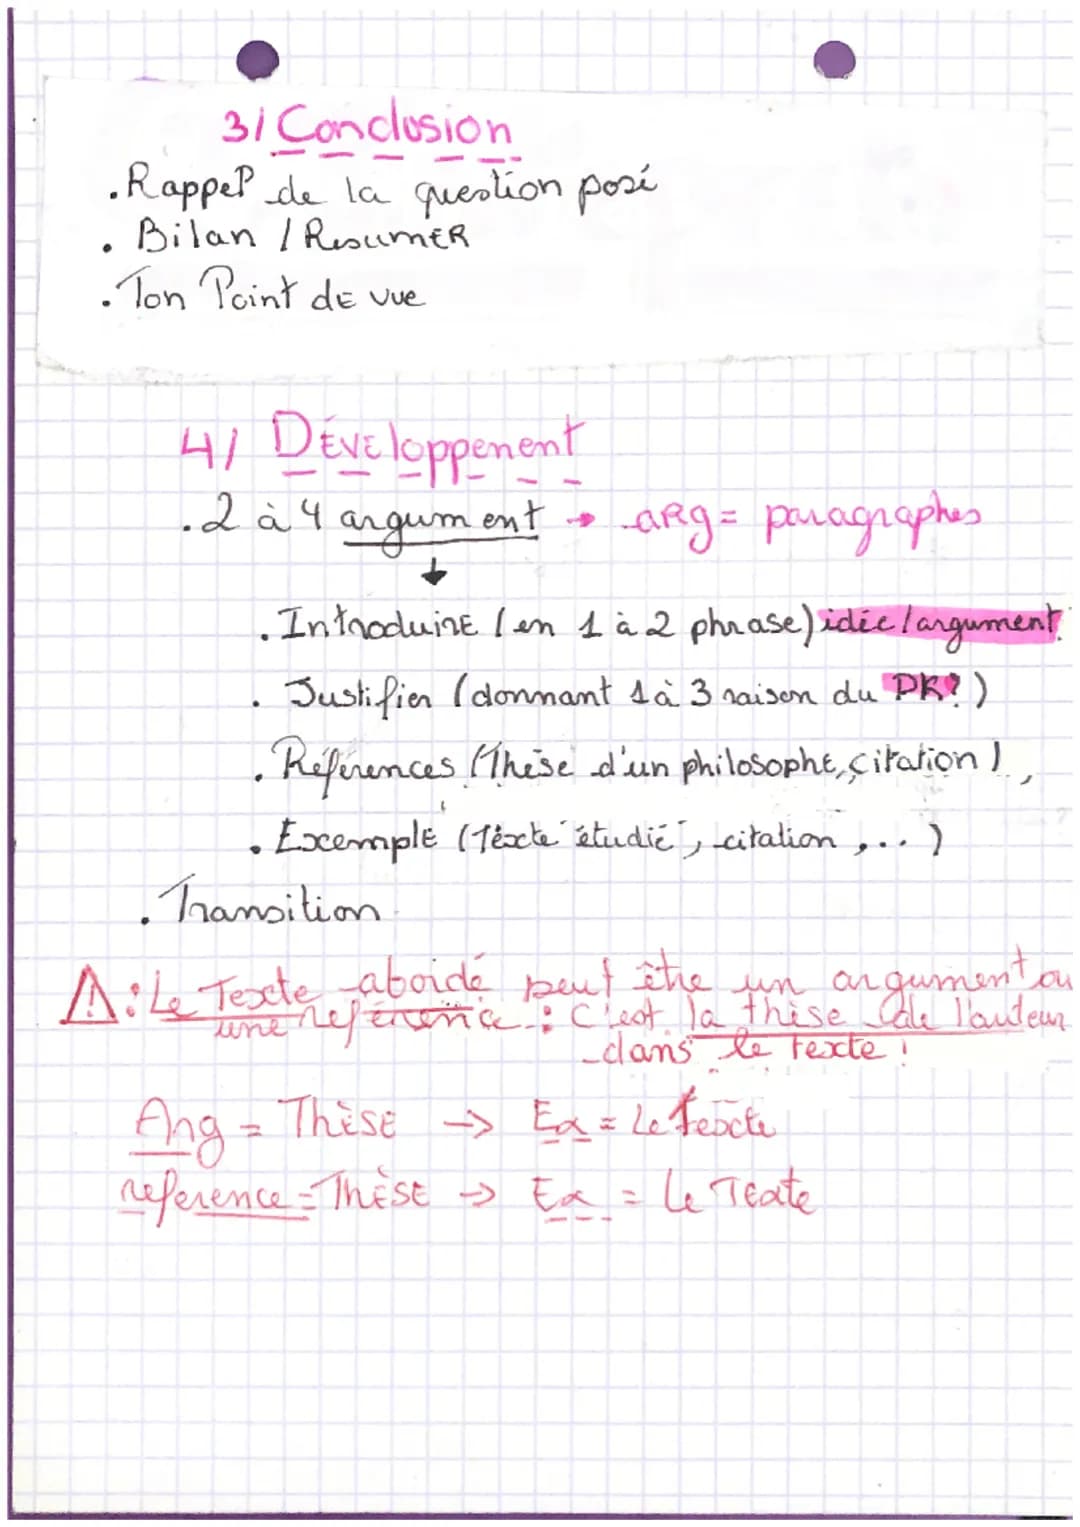 3/ Conclusion
. Rappel de la question posé
. Bilan / ResumER
. Ton Point dE vue
4/ DÉVEloppenent
. 2 à 4 argument → aRg = paragraphes
↓
. IntroduirE (en 1 à 2 phrase) idée/argument.
. Justifier (donnant 1 à 3 raison du PK?)
. Références (Thèse d'un philosophE, citation),
. ExcemplE (Texte étudié, citation, ...)
. Transition
⚠ : Le Texte abordé peut être un argument ou
une reférence : C'est la thèse de l'auteur
dans le texte !
Arg = ThèsE → Ex = Le texte
reference = ThèsE → Ex = Le TExte